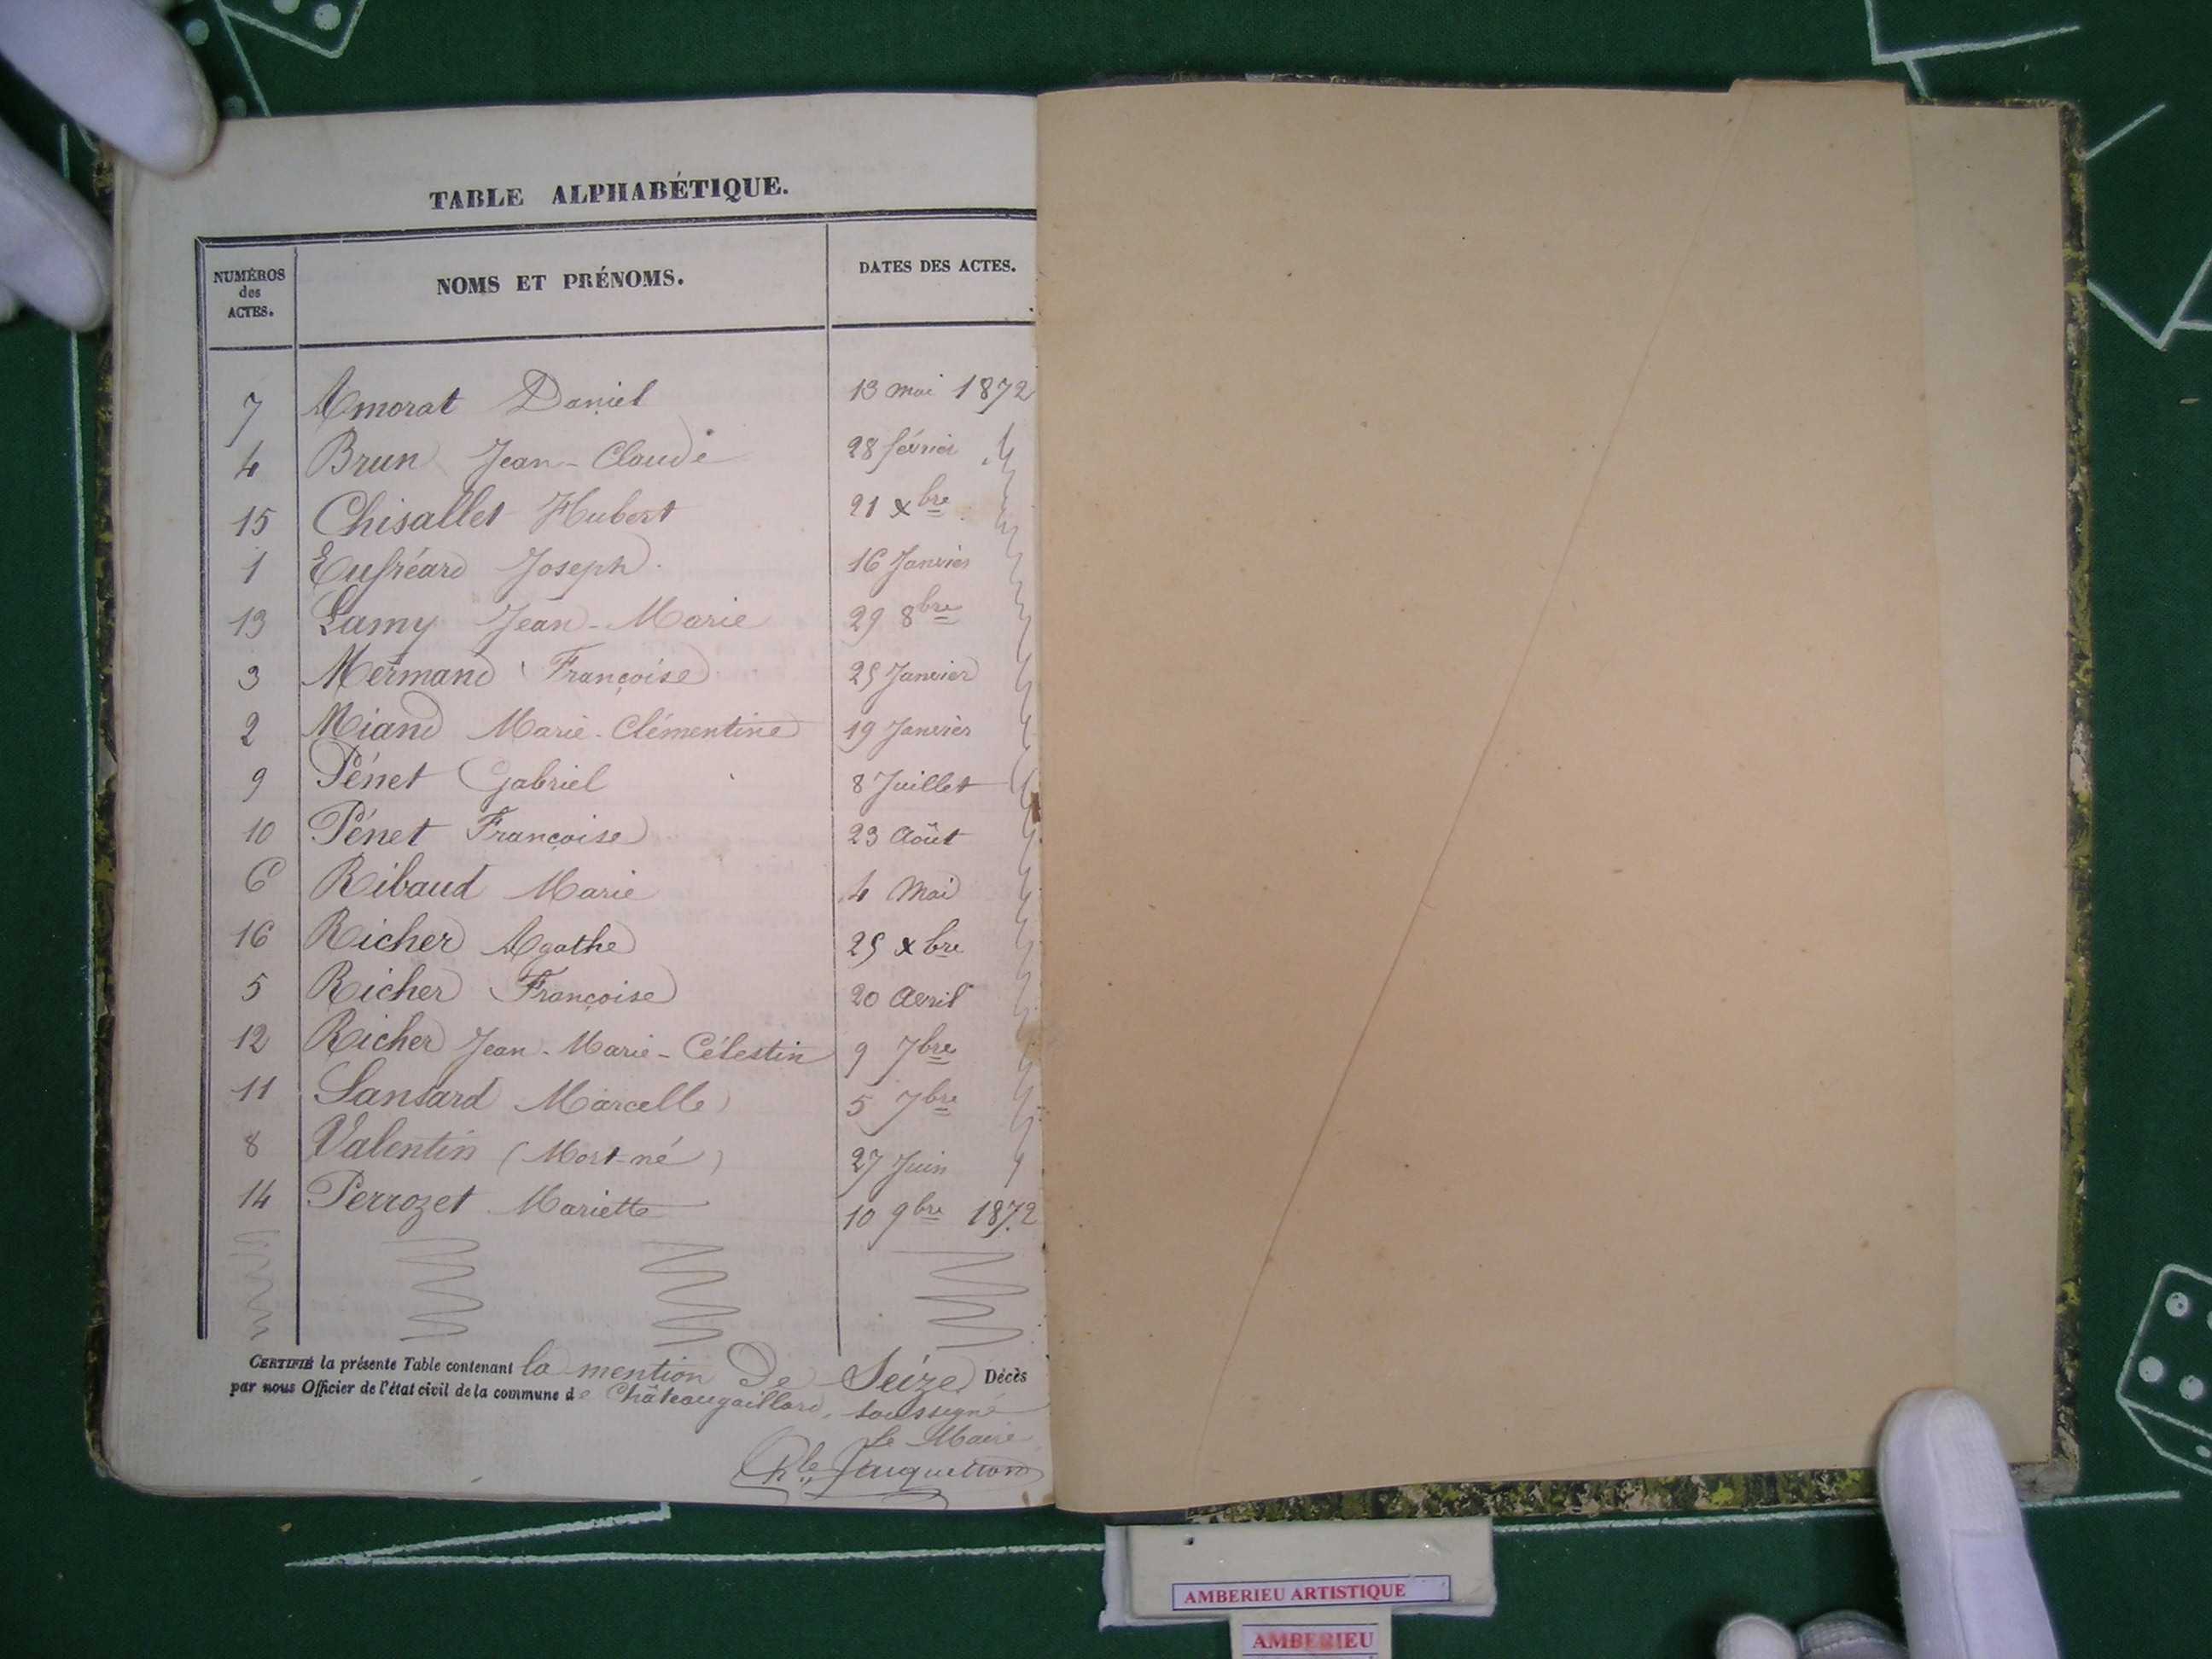 TABLE ALPHABÉTIQUE.
NUMÉROS des ACTES. NOMS ET PRÉNOMS. DATES DES ACTES.
7 Amorat Daniel 13 mai 1872
4 Brun Jean-Claude 28 février
15 Chisallet Hubert 21 xbre
1 Eufréard Joseph 16 Janvier
13 Lamy Jean-Marie 29 8bre
3 Mermand Françoise 25 Janvier
2 Miand Marie-Clémentine 19 Janvier
9 Pénet Gabriel 8 Juillet
10 Pénet Françoise 23 Août
6 Ribaud Marie 4 Mai
16 Richer Agathe 25 xbre
5 Richer Françoise 20 Avril
12 Richer Jean-Marie-Célestin 9 7bre
11 Sansard Marcelle 5 7bre
8 Valentin (Mort-né) 27 Juin
14 Perrozet Mariette 10 9bre 1872
CERTIFIÉ la présente Table contenant la mention De Seize Décès
par nous Officier de l'état civil de la commune de Châteaugaillard, soussigné
le Maire
AMBERIEU ARTISTIQUE
AMBERIEU